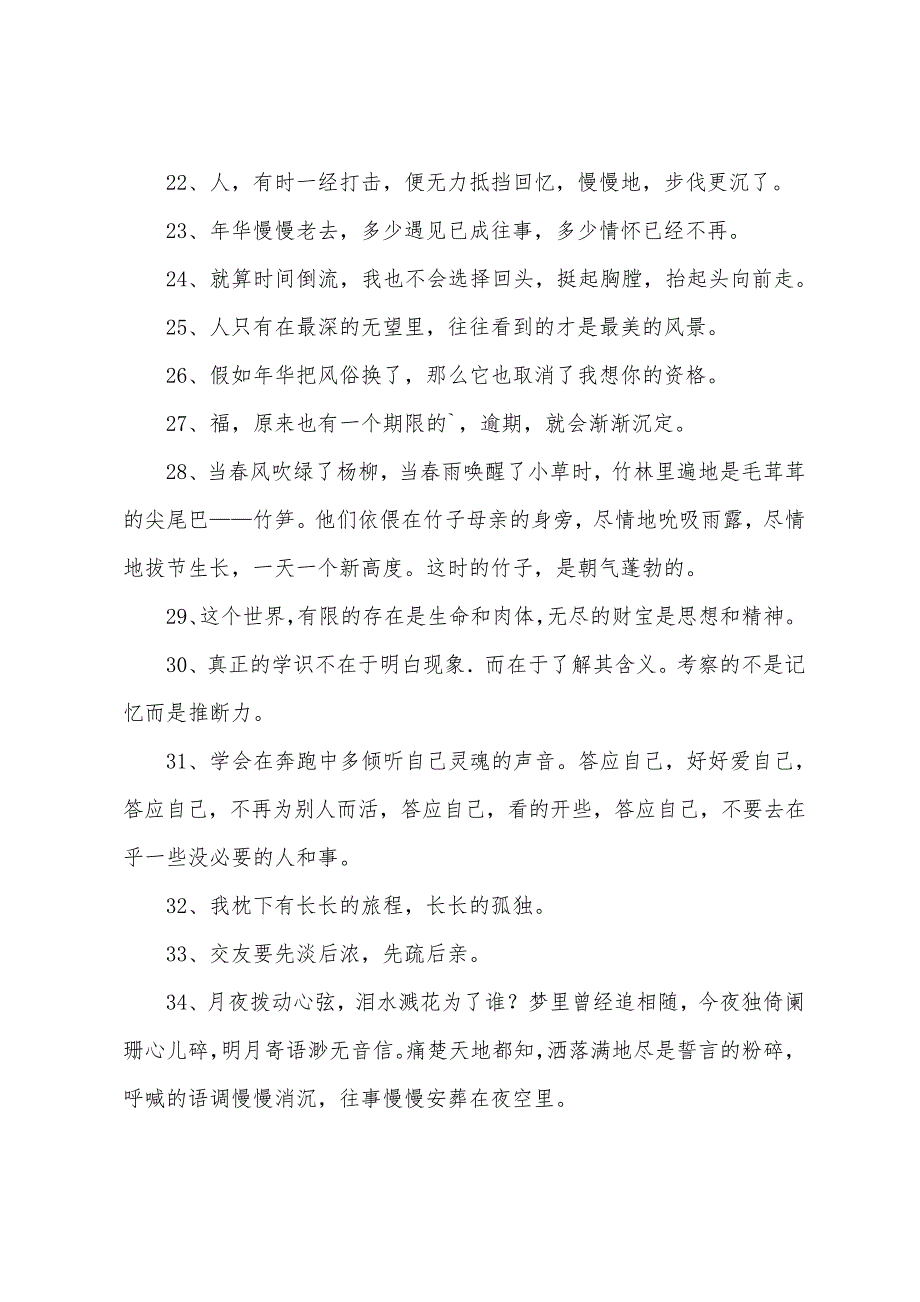 22、人，有时一经打击，便无力抵挡回忆，慢慢地，步伐更沉了。
23、年华慢慢老去，多少遇见已成往事，多少情怀已经不再。
24、就算时间倒流，我也不会选择回头，挺起胸膛，抬起头向前走。
25、人只有在最深的无望里，往往看到的才是最美的风景。
26、假如年华把风俗换了，那么它也取消了我想你的资格。
27、福，原来也有一个期限的`，逾期，就会渐渐沉定。
28、当春风吹绿了杨柳，当春雨唤醒了小草时，竹林里遍地是毛茸茸
的尖尾巴——竹笋。他们依偎在竹子母亲的身旁，尽情地吮吸雨露，尽情
地拔节生长，一天一个新高度。这时的竹子，是朝气蓬勃的。
29、这个世界，有限的存在是生命和肉体，无尽的财宝是思想和精神。
30、真正的学识不在于明白现象．而在于了解其含义。考察的不是记
忆而是推断力。
31、学会在奔跑中多倾听自己灵魂的声音。答应自己，好好爱自己，
答应自己，不再为别人而活，答应自己，看的开些，答应自己，不要去在
乎一些没必要的人和事。
32、我枕下有长长的旅程，长长的孤独。
33、交友要先淡后浓，先疏后亲。
34、月夜拨动心弦，泪水溅花为了谁？梦里曾经追相随，今夜独倚阑
珊心儿碎，明月寄语渺无音信。痛楚天地都知，洒落满地尽是誓言的粉碎，
呼喊的语调慢慢消沉，往事慢慢安葬在夜空里。